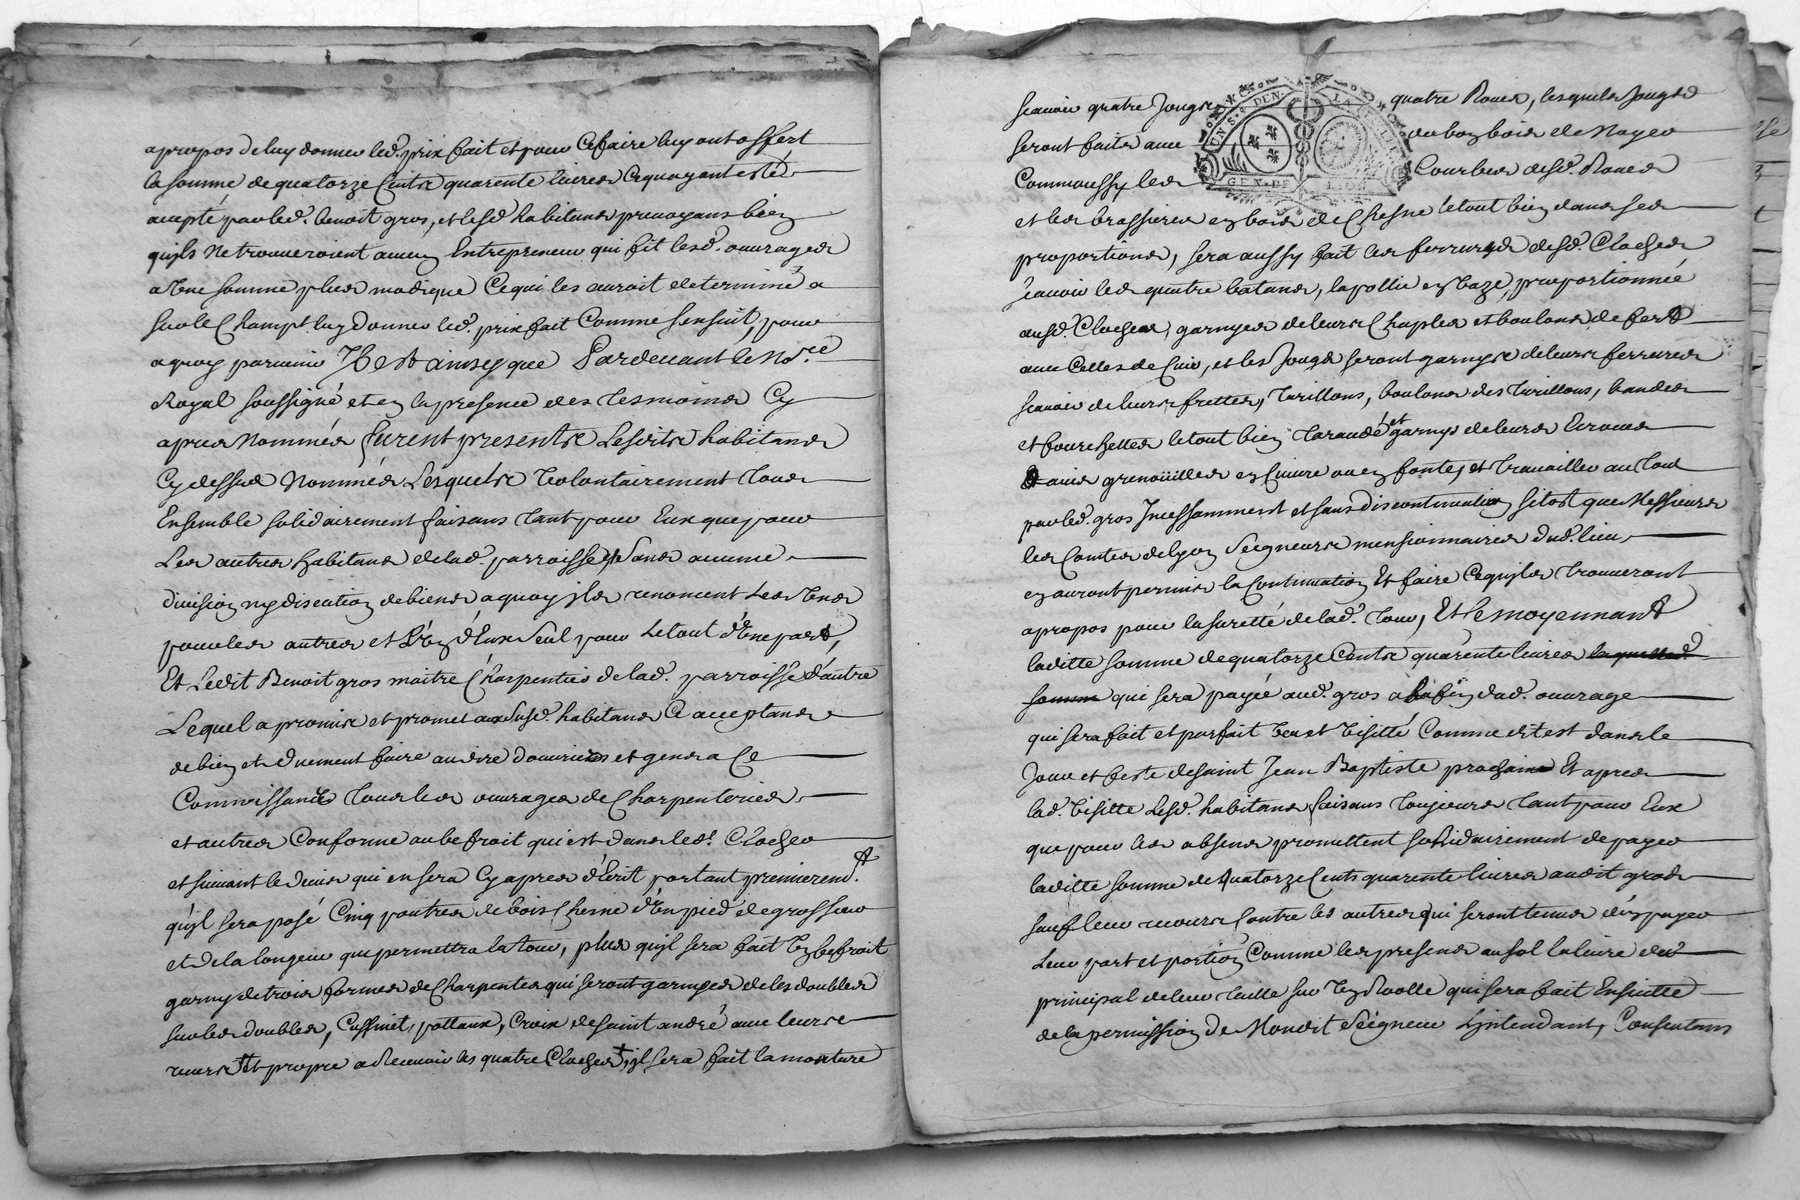 apropos de luy donner led. prix fait et pour ce faire luy ont offert
la somme de quatorze Cents quarente livres Ce quayant esté
accepté par led. benoit gros, et lesd habitans prevoyans bien
quils ne trouveroient aucun Entrepreneur qui fit lesd. ouvrages
a une somme plus modique Ce qui les auroit determiné a
sur le Champt luy donner led. prix fait Comme sensuit, pour
a quoy parvenir Il est ainsy que Pardevant le No.re
Royal soussigné et en la presence des tesmoins Cy
apres nommés furent presents Lesdits habitans
Cy dessus Nommés Lesquels volontairement tous
Ensemble solidairement faisans tant pour Eux que pour
Les autres habitans de lad. parroisse sans aucune
division ny discution de biens a quoy ils renoncent Les Uns
pour les autres et L'un d'Eux seul pour Le tout d'Une part,
Et Ledit Benoit gros maitre Charpentier de lad. parroisse d'autre
Lequel a promis et promet aux susd. habitans Ce acceptans
de bien et duement faire au dire d'ouvriers et gens a Ce
Connoissances tous les ouvrages de Charpenteries
et autres Conforme au befroit qui est dans led. Clocher
et suivant le devis qui en sera Cy apres d'Ecrit portant premierem.t
qu'il sera posé Cinq poutres de bois Chesne d'Un pied de grosseur
et de la longeur que permettra la tour, plus qu'il sera fait Un befroit
garny de trois formes de Charpentes qui seront garnyes de les doubles
sur les doubles, Cussinet, pottaux, Croix de saint andré avec leurs
revers Et propre a Recevoir les quatre Cloches, il sera fait la monture
scavoir quatre Jougs quatre Roues, lesquels Jougs
seront faits avec du bon bois de Noyer
Comm aussy les Courbes desd. Roues
et les brassieres en bois de Chesne le tout bien dans ses
proportions, sera aussy fait les ferrures desd. Cloches
scavoir les quatre batans, la pollie en baze, proportionnée
ausd. Cloches, garnyes de leurs Chaples et boulons de fert
avec Celles de Cuir, et les Jougs seront garnys de leurs ferrures
scavoir de leurs frettes, turillons, boulons des turillons, bandes
et fourchettes le tout bien taraudé et garnys de leurs Ecroues
avec grenoüilles en Cuivre ou en fonte, et travailler au tout
par led. gros Incessamment et sans discontinuation sitost que Messieurs
les Comtes de lyon Seigneurs mensionnaires dud. lieu
en auront permis la Continuation Et faire Ce qu'ils trouveront
apropos pour la suretté de lad. tour, Et Le moyennant
laditte somme de quatorze Cents quarente livres laquelle
somme qui sera payée aud. gros a la fin dud. ouvrage
qui sera fait et parfait Veu et Visitté Comme dit est dans le
Jour et feste de saint Jean Baptiste prochaine Et apres
lad. Visitte Lesd. habitans faisans toujours tant pour Eux
que pour les absens promettent solidairement de payer
laditte somme de quatorze Cents quarente livres audit gros
sauf leur recours Contre les autres qui seront tenus d'en payer
Leur part et portion Comme les presens au sol la livre du
principal de leur taille sur Un Roolle qui sera fait Ensuitte
de la permission de Mondit Seigneur L'intendant, Consentans